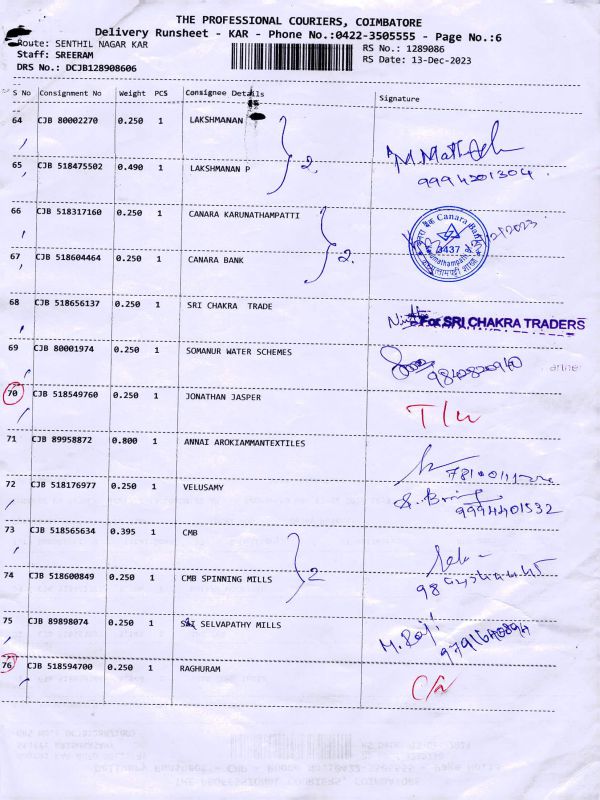 THE PROFESSIONAL COURIERS, COIMBATORE
Delivery Runsheet - KAR - Phone No.:0422-3505555 - Page No.:6
Route: SENTHIL NAGAR KAR
RS No.: 1289086
Staff: SREERAM
RS Date: 13-Dec-2023
DRS No.: DCJB128908606
S No Consignment No Weight PCS Consignee Details Signature
64 CJB 80002270 0.250 1 LAKSHMANAN
65 CJB 518475502 0.490 1 LAKSHMANAN P 2
9994201304
66 CJB 518317160 0.250 1 CANARA KARUNATHAMPATTI
Canara Bank
3437
67 CJB 518604464 0.250 1 CANARA BANK 2.
68 CJB 518656137 0.250 1 SRI CHAKRA TRADE
For SRI CHAKRA TRADERS
69 CJB 80001974 0.250 1 SOMANUR WATER SCHEMES
9842820940
70 CJB 518549760 0.250 1 JONATHAN JASPER
71 CJB 89958872 0.800 1 ANNAI AROKIAMMANTEXTILES
72 CJB 518176977 0.250 1 VELUSAMY
9994401532
73 CJB 518565634 0.395 1 CMB
74 CJB 518600849 0.250 1 CMB SPINNING MILLS 2
75 CJB 89898074 0.250 1 SRI SELVAPATHY MILLS
M. Raji
76 CJB 518594700 0.250 1 RAGHURAM